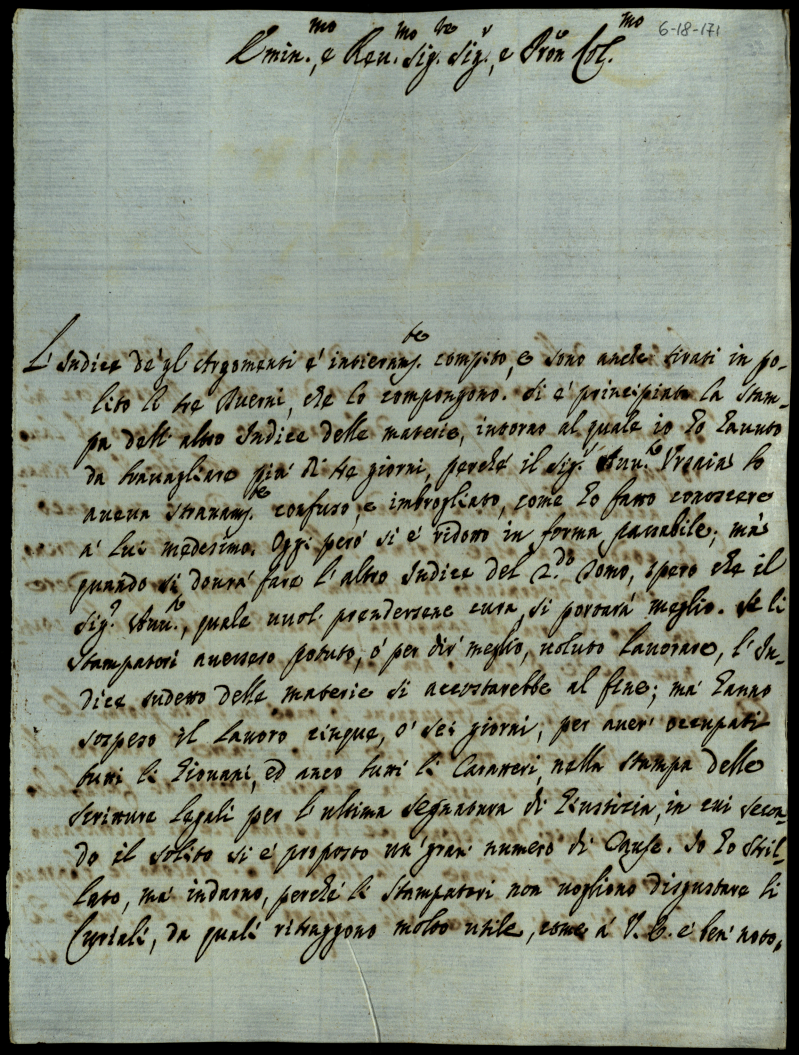 6-18-171
Emin.mo, e Reu.mo Sig.re Sig.r, e Pron Col.mo
L'Indice de' gl'Argomenti é intieram.te compito, e sono anche tirati in po-
lito li tre Duerni, che lo compongono. Si é principiata la stam-
pa dell'altro Indice delle materie, intorno al quale io hò hauuto
da trauagliare piú di tre giorni, perché il Sig.r Auu.to lo
aueua stranam.te confuso, e imbrogliato, come hò fatto conoscere
á lui medesimo. Oggi peró si é ridotto in forma passabile; má
quando si dourá fare l'altro Indice del 2.do Tomo, spero che il
Sig.r Auu.to, quale uuol prendersene cura, si portará meglio. Se li
Stampatori auessero potuto, ó per dir' meglio, uoluto lauorare, l'In-
dice sudetto delle materie si accostarebbe al fine; má hanno
sospeso il lauoro cinque, ó sei giorni, per auer' occupati
tutti li Giouani, ed anco tutti li Caratteri nella stampa delle
scritture legali per l'ultima segnatura di Giustizia, in cui secon-
do il solito si é proposto un' gran' numero di Cause. Io hò stril-
lato, má indarno, perché li Stampatori non uogliono disgustare li
Curiali, da quali ritraggono molto utile, come á V. E. é ben' noto,